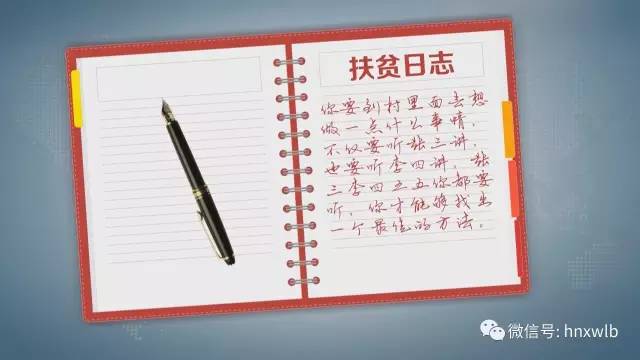 扶贫日志
你要到村里面去想
做一点什么事情，
不仅要听张三讲，
也要听李四讲，张
三李四王五你都要
听，你才能够找出
一个最佳的方法。
微信号: hnxwlb